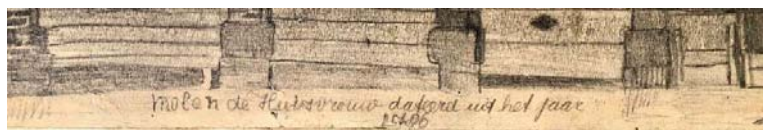 molen de Huisvrouw dateerd uit het jaar